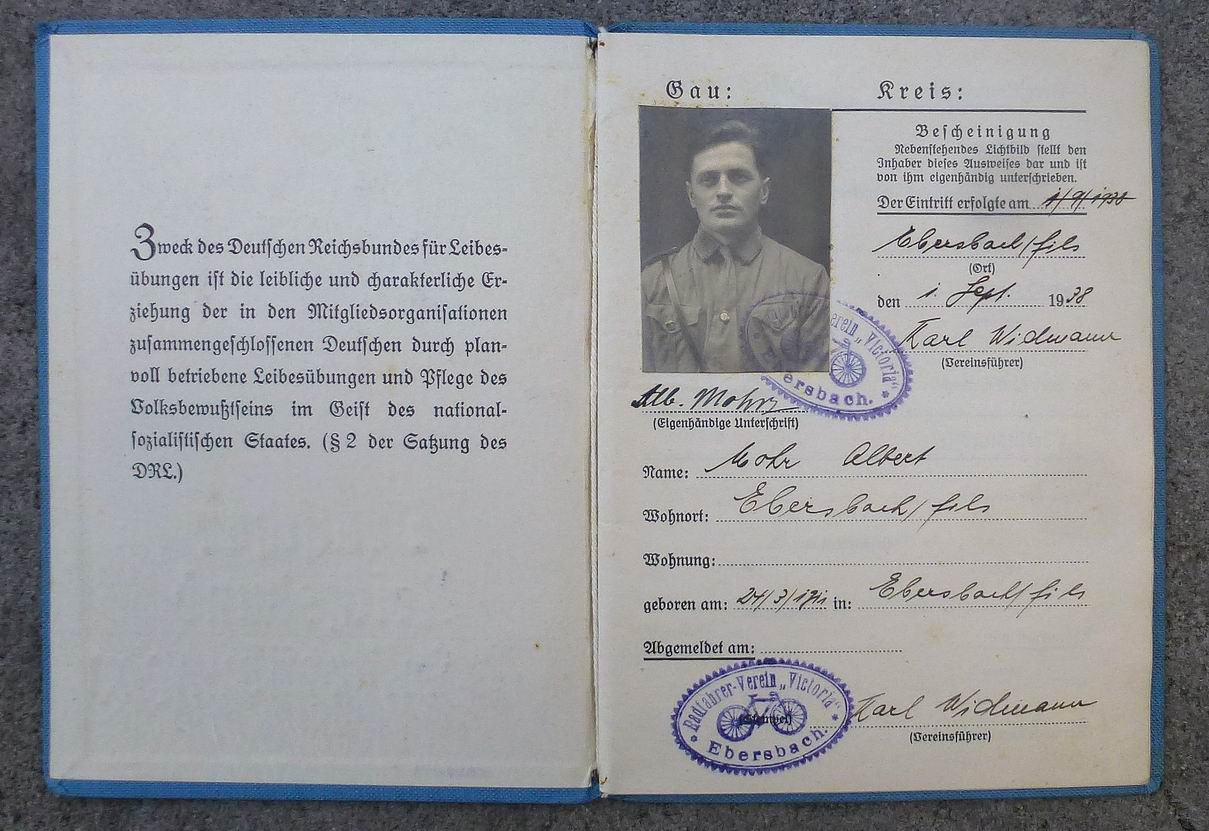 Zweck des Deutschen Reichsbundes für Leibes-
übungen ist die leibliche und charakterliche Er-
ziehung der in den Mitgliedsorganisationen
zusammengeschlossenen Deutschen durch plan-
voll betriebene Leibesübungen und Pflege des
Volksbewußtseins im Geist des national-
sozialistischen Staates. (§ 2 der Satzung des
DRL.)
Gau: Kreis:
Bescheinigung
Nebenstehendes Lichtbild stellt den
Inhaber dieses Ausweises dar und ist
von ihm eigenhändig unterschrieben.
Der Eintritt erfolgte am 1/9/1938
Ebersbach/fils
(Ort)
den 1. Sept. 1938
Karl Widmann
(Vereinsführer)
erein „Victoria"
ersbach.
Alb. Mohr
(Eigenhändige Unterschrift)
Name: Mohr Albert
Wohnort: Ebersbach/fils
Wohnung:
geboren am: 24/3/1911 in: Ebersbach/fils
Abgemeldet am:
Radfahrer-Verein „Victoria"
(Stempel)
Ebersbach.
Karl Widmann
(Vereinsführer)